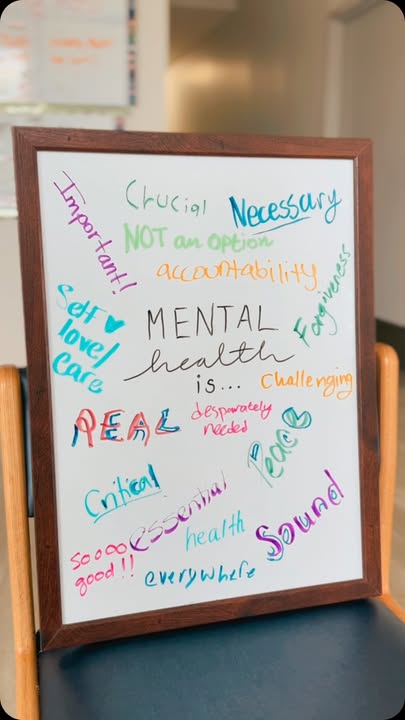 Crucial
Necessary
Important!
NOT an option
accountability
Forgiveness
Self
love/
care
MENTAL
health
is...
Challenging
REAL
desparately
needed
Peace
Critical
essential
health
Sound
soooo
good!!
everywhere